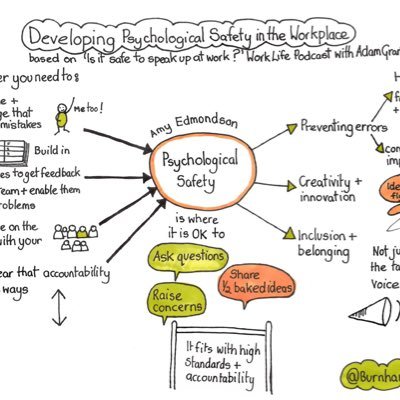 Developing Psychological Safety in the Workplace
based on 'Is it safe to speak up at work?' WorkLife Podcast with Adam Gran
er you need to:
e +
ge that
mistakes
Me too!
Build in
es to get feedback
eam + enable them
roblems
e on the
with your
ear that accountability
ways
Amy Edmondson
Psychological
Safety
is where
it is OK to
Ask questions
Raise
concerns
Share
½ baked ideas
It fits with high
Standards +
accountability
Preventing errors
Creativity +
innovation
Inclusion +
belonging
H
fi
+
con
imp
Ide
fl
Not ju
the fa
Voice
@Burnha